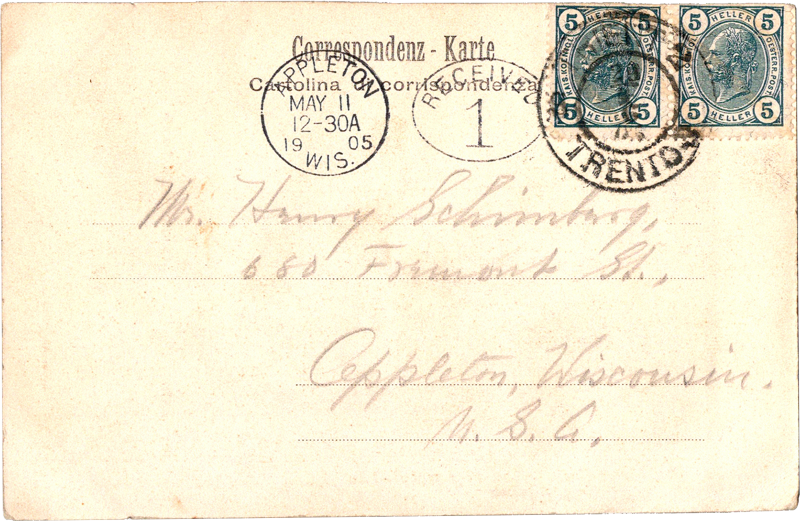 Correspondenz - Karte
Cartolina corrispondenza
APPLETON
MAY 11
12-30A
19 05
WIS.
RECEIVED
1
TRENTO
5 HELLER 5
KAIS. KOENIGL. OESTERR. POST
5 HELLER 5
5 HELLER 5
KAIS. KOENIGL. OESTERR. POST
5 HELLER 5
Mr. Henry Schimberg,
680 Fremont St.,
Appleton, Wisconsin.
U. S. A.